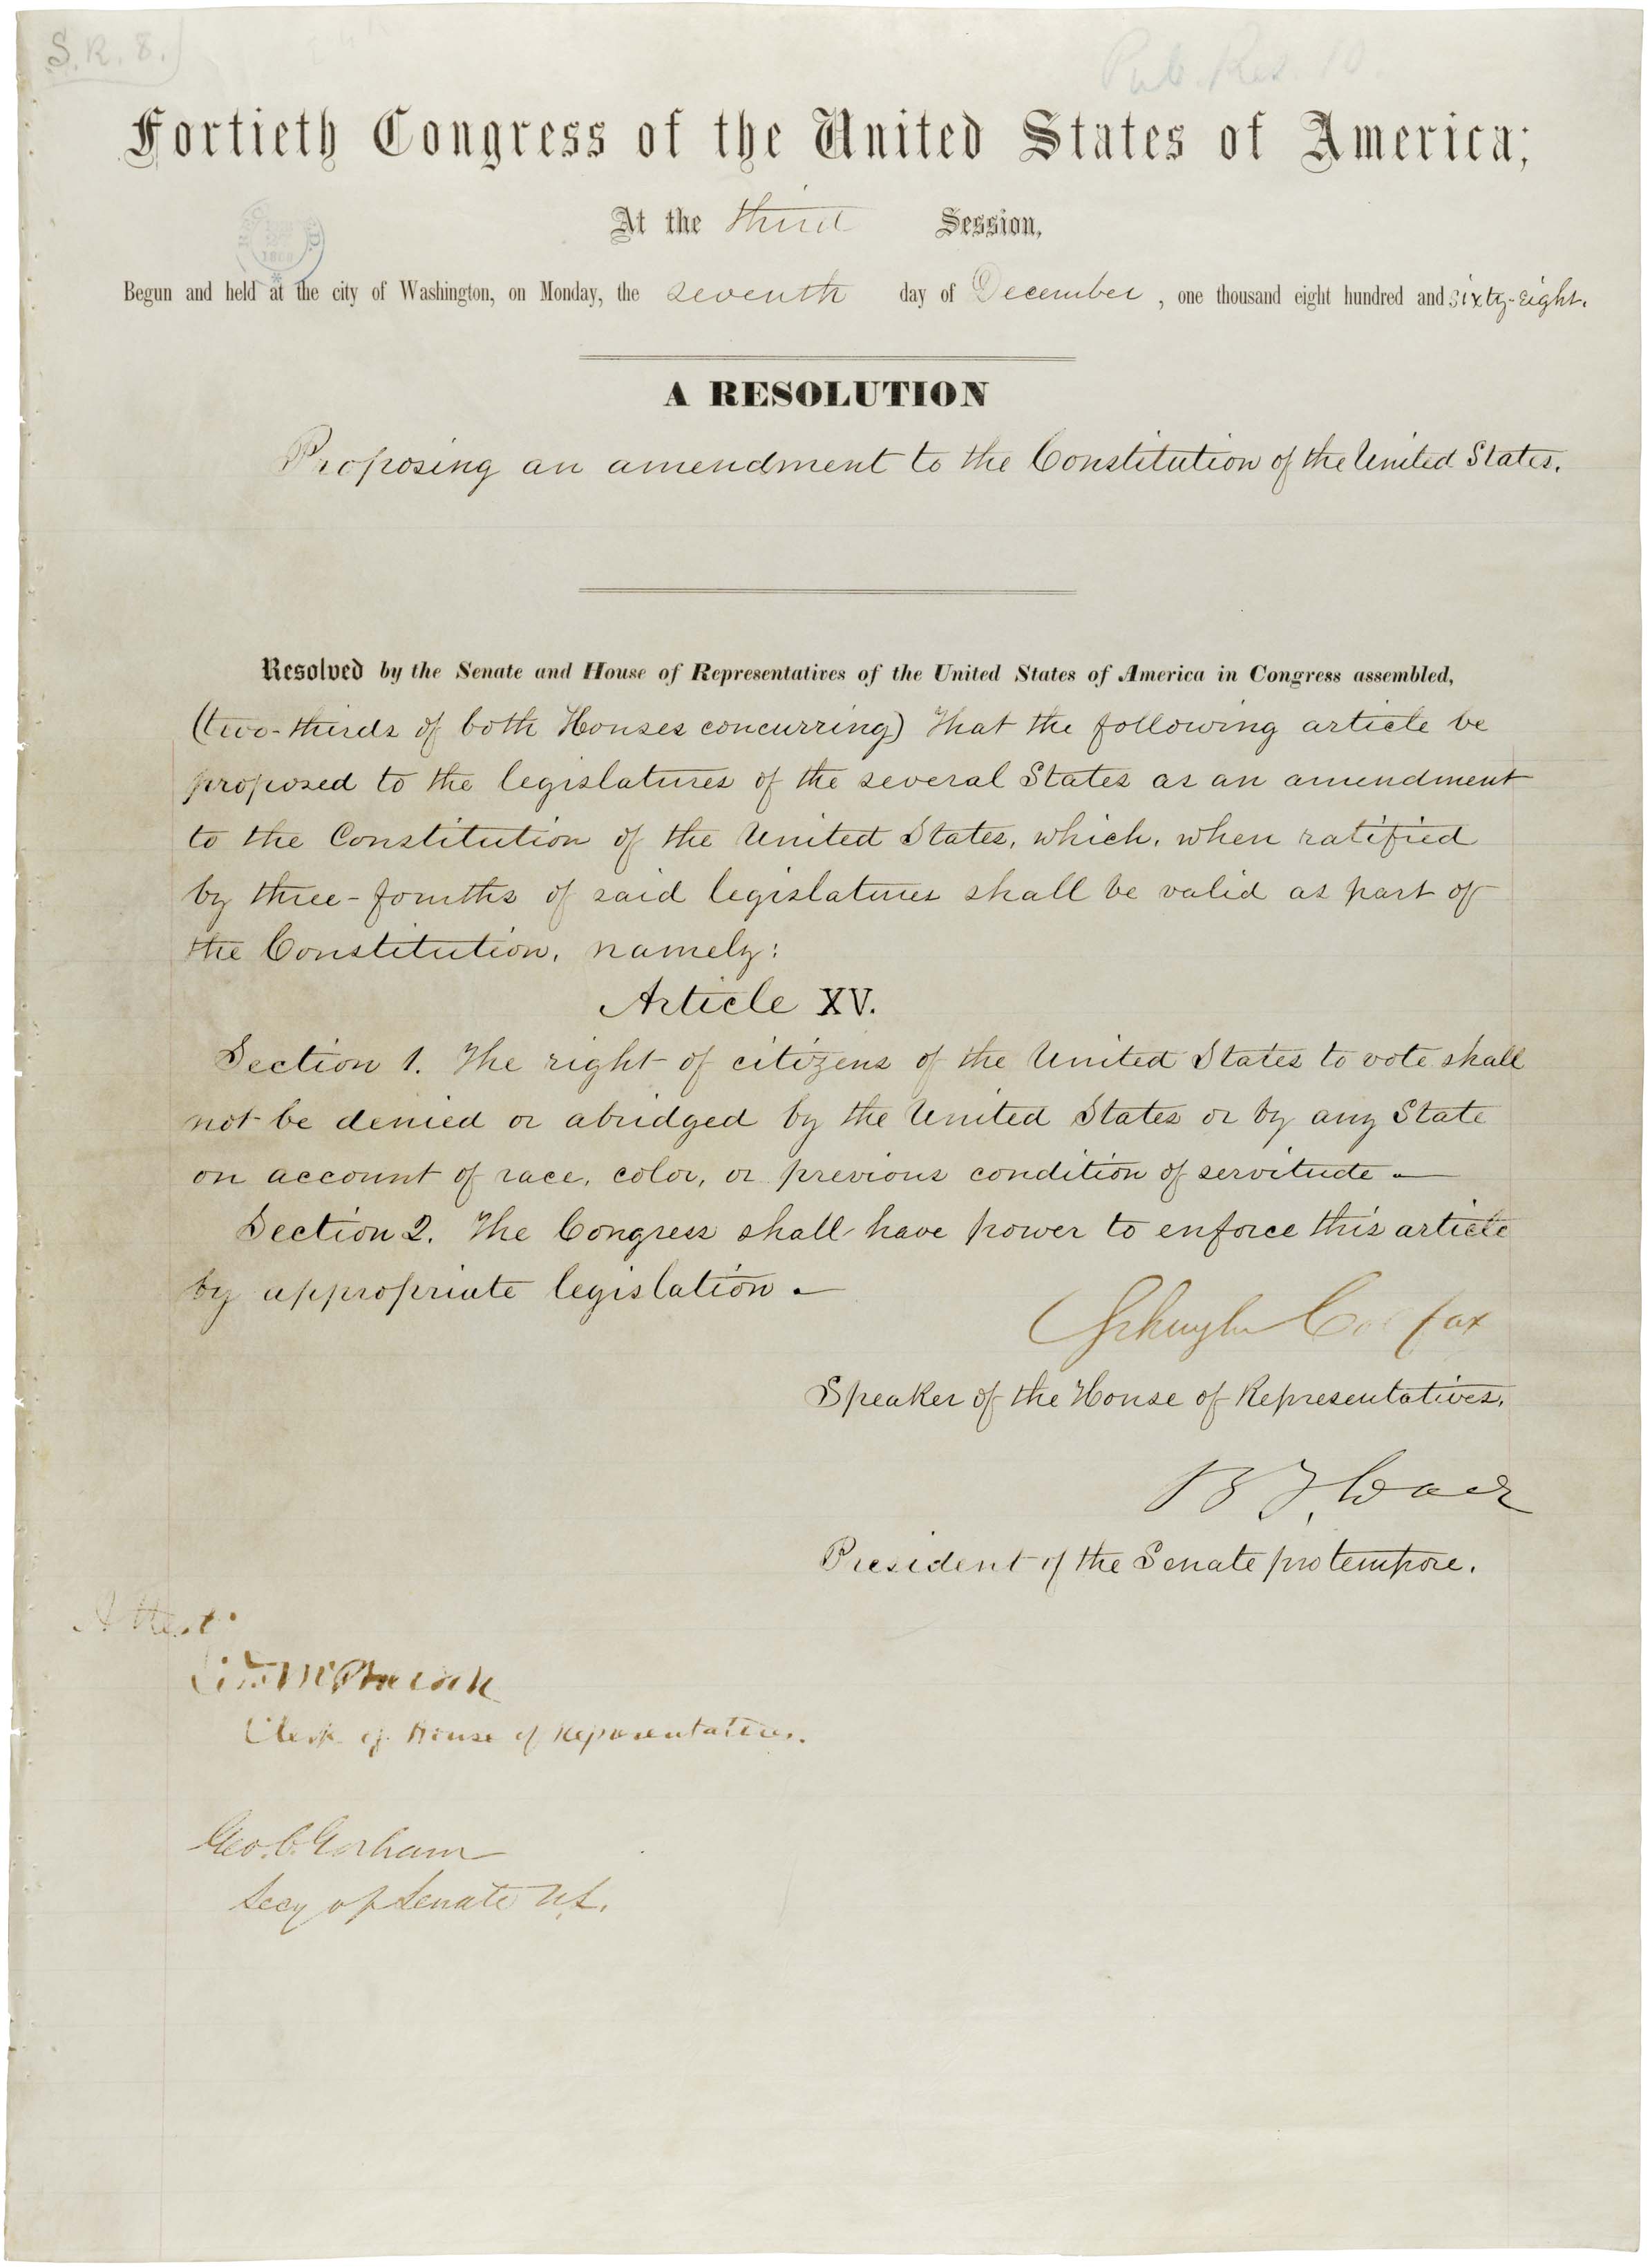 S.R. 8.)
Pub. Res. 10.
Fortieth Congress of the United States of America;
At the third Session,
Begun and held at the city of Washington, on Monday, the seventh day of December, one thousand eight hundred and sixty-eight.
A RESOLUTION
Proposing an amendment to the Constitution of the United States.
Resolved by the Senate and House of Representatives of the United States of America in Congress assembled,
(two-thirds of both Houses concurring) That the following article be
proposed to the legislatures of the several States as an amendment
to the Constitution of the United States, which, when ratified
by three-fourths of said legislatures shall be valid as part of
the Constitution, namely:
Article XV.
Section 1. The right of citizens of the United States to vote shall
not be denied or abridged by the United States or by any State
on account of race, color, or previous condition of servitude.—
Section 2. The Congress shall have power to enforce this article
by appropriate legislation.—
Schuyler Colfax
Speaker of the House of Representatives.
B F Wade
President of the Senate pro tempore.
Attest:
Edwd McPherson
Clerk of House of Representatives.
Geo. C. Gorham
Secy of Senate U.S.